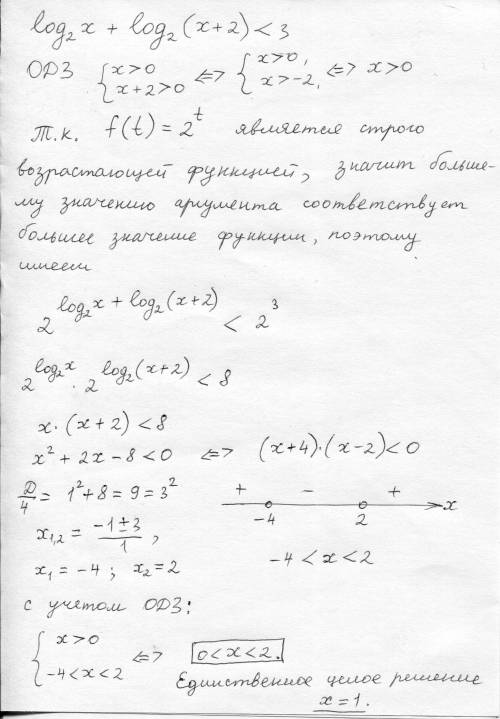 log₂x + log₂(x+2) < 3
ОДЗ { x>0 x+2>0 <=> { x>0, x>-2, <=> x>0
Т.к. f(t) = 2^t является строго
возрастающей функцией, значит больше-
му значению аргумента соответствует
большее значение функции, поэтому
имеем
2^(log₂x + log₂(x+2)) < 2³
2^(log₂x) · 2^(log₂(x+2)) < 8
x·(x+2) < 8
x² + 2x - 8 < 0 <=> (x+4)·(x-2) < 0
D/4 = 1² + 8 = 9 = 3²
+ - +
-4 2 x
x₁,₂ = (-1±3)/1,
x₁ = -4; x₂ = 2
-4 < x < 2
с учетом ОДЗ:
{ x>0 -4<x<2 <=> 0<x<2.
Единственное целое решение
x=1.